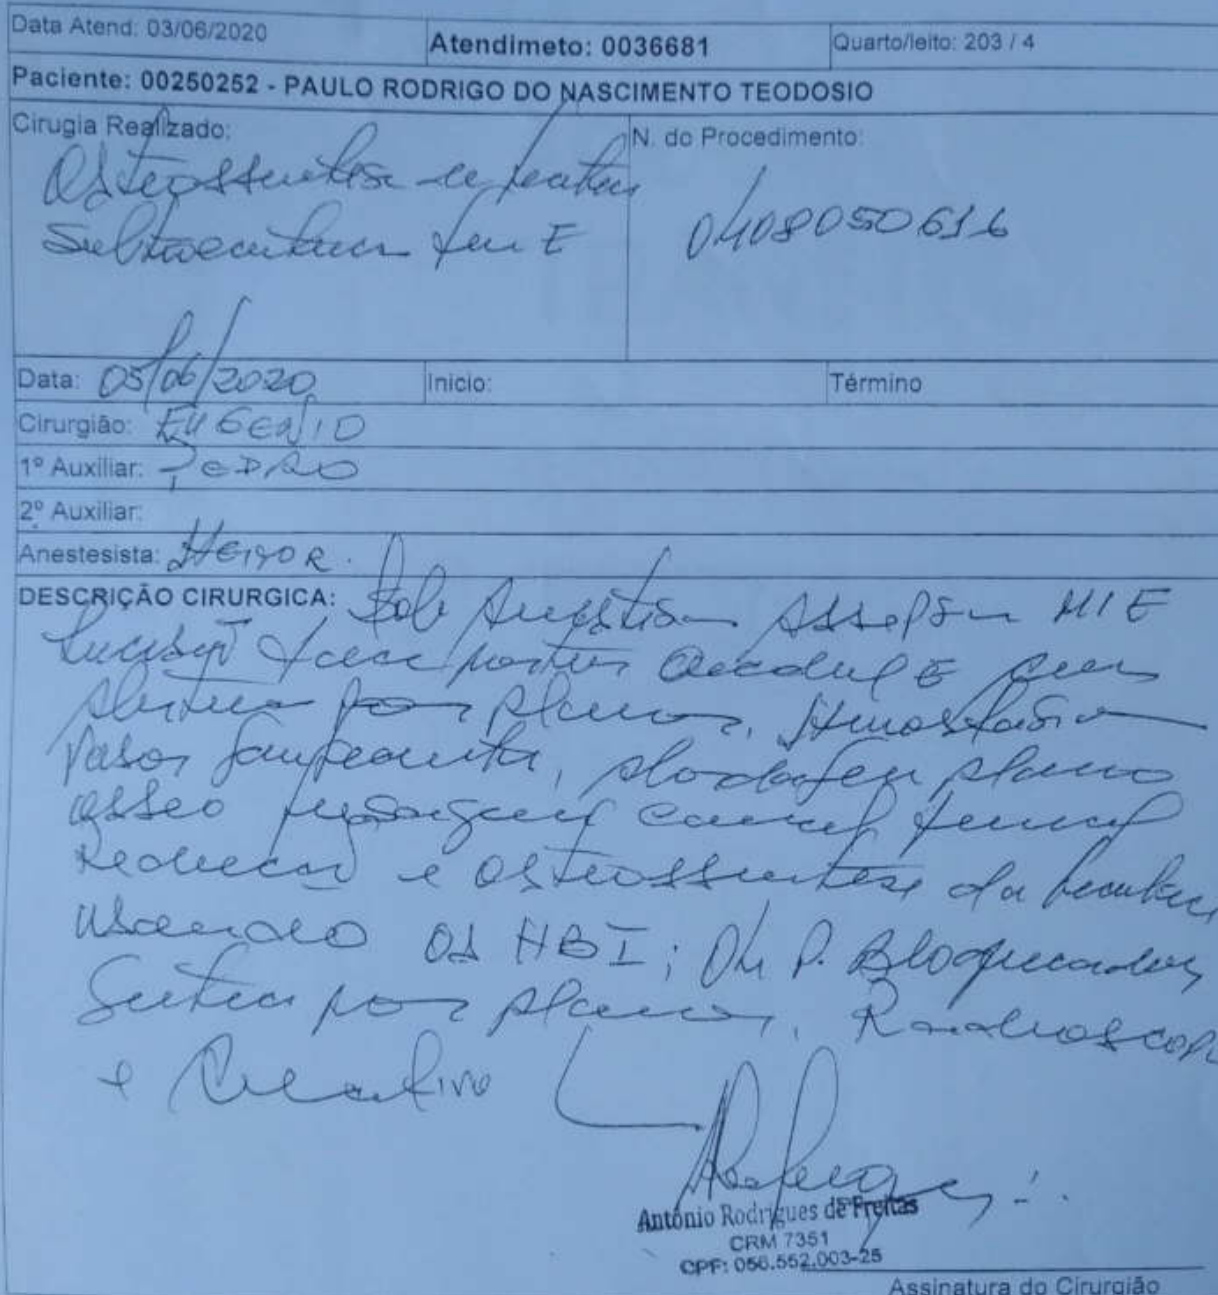 Data Atend: 03/06/2020 Atendimeto: 0036681 Quarto/leito: 203 / 4
Paciente: 00250252 - PAULO RODRIGO DO NASCIMENTO TEODOSIO
Cirugia Realizado: N. do Procedimento:
Osteossintese
E 0408050616
Data: 05/06/2020 Inicio: Término
Cirurgião: EUGENIO
1º Auxiliar: PEDRO
2º Auxiliar:
Anestesista: HEITOR.
DESCRIÇÃO CIRURGICA: Sob Assepsia MIE
Incisão face E
por planos. Hemostasia
Vasos plano
osseo canal femural
Redução e osteossintese da
Usando 01 HBI; 04 P. Bloqueados
Sutura por planos. Radioscop
e Curativo
Antônio Rodrigues de Freitas
CRM 7351
CPF: 056.552.003-25
Assinatura do Cirurgião